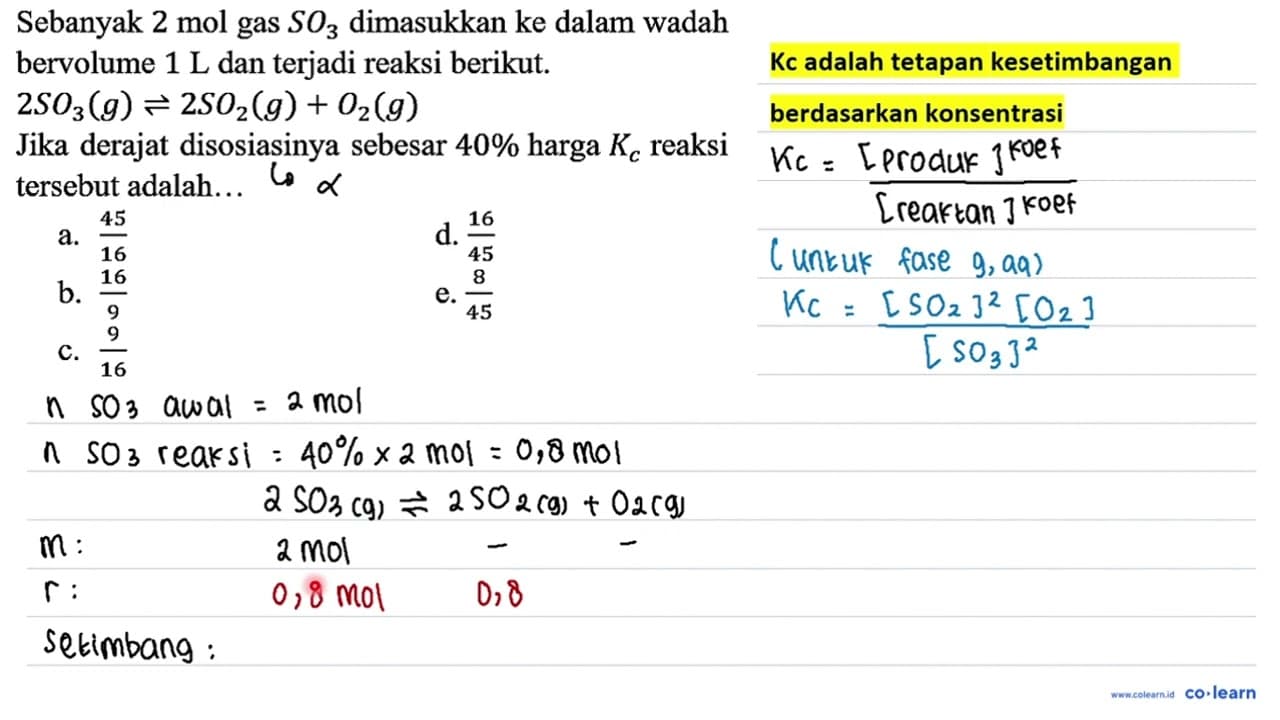 Sebanyak 2 mol gas SO₃ dimasukkan ke dalam wadah
bervolume 1 L dan terjadi reaksi berikut.
2SO₃(g) ⇌ 2SO₂(g) + O₂(g)
Jika derajat disosiasinya sebesar 40% harga K_c reaksi
tersebut adalah... ↳ α
a. 45/16
b. 16/9
c. 9/16
d. 16/45
e. 8/45
Kc adalah tetapan kesetimbangan
berdasarkan konsentrasi
Kc = [produk]^koef / [reaktan]^koef
(untuk fase g, aq)
Kc = [SO₂]² [O₂] / [SO₃]²
n SO₃ awal = 2 mol
n SO₃ reaksi = 40% × 2 mol = 0,8 mol
2 SO₃ (g) ⇌ 2 SO₂ (g) + O₂ (g)
m: 2 mol – –
r: 0,8 mol 0,8
Setimbang:
www.colearn.id co·learn